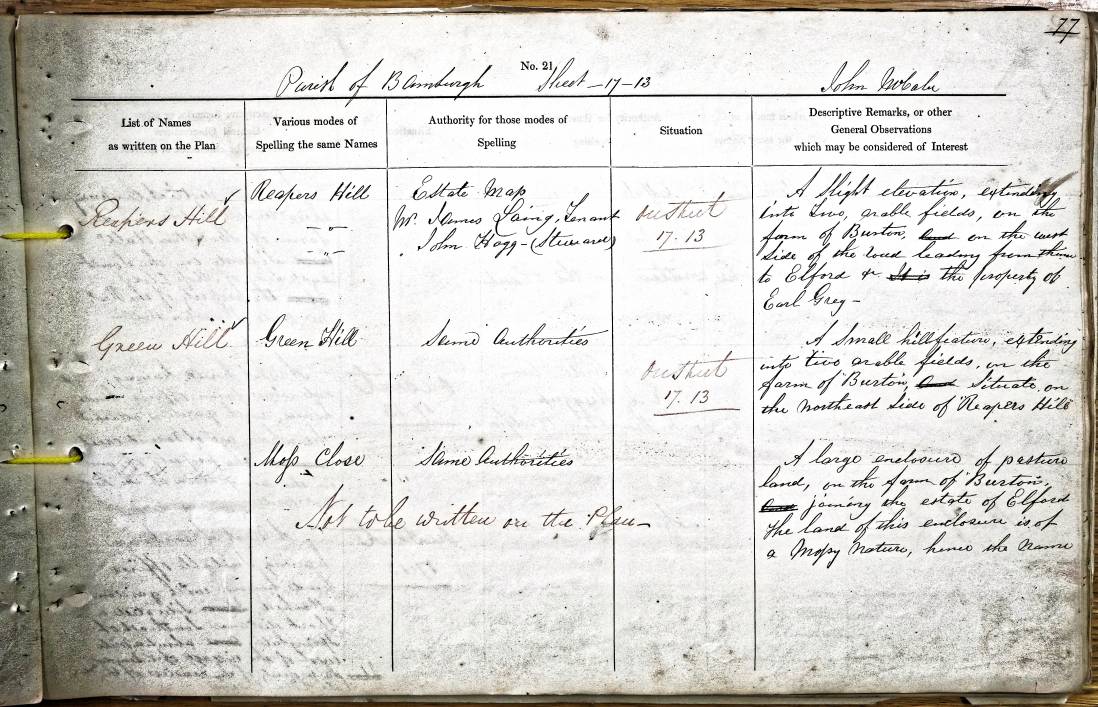 77
No. 21
Parish of Bamburgh Sheet - 17 - 13 John McCabe
List of Names
as written on the Plan
Various modes of
Spelling the same Names
Authority for those modes of
Spelling
Situation
Descriptive Remarks, or other
General Observations
which may be considered of Interest
Reapers Hill
Reapers Hill
- „ -
- „ -
Estate Map
Mr. James Laing, Tenant
John Hogg - (Steward)
On Sheet
17. 13
A slight elevation, extending
into two, arable fields, on the
farm of Burton, and on the west
side of the road leading from them
to Elford &. It is the property of
Earl Grey -
Green Hill
Green Hill
Same Authorities
On Sheet
17. 13
A small hill feature, extending
into two arable fields, on the
farm of "Burton", and situate on
the Northeast side of "Reapers Hill"
Moss Close
Same Authorities
A large enclosure of pasture
land, on the farm of "Burton",
and joining the estate of Elford
The land of this enclosure is of
a Mossy Nature, hence the Name
Not to be written on the Plan -